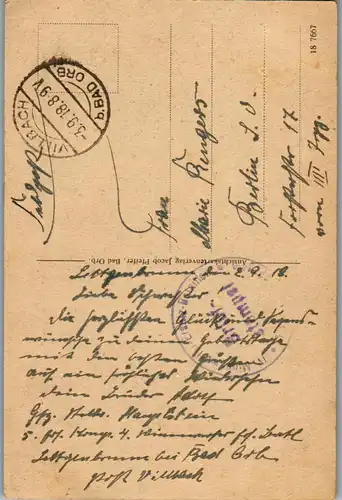 18 7667
VILLBACH
3.9.18.8-9V
b. BAD ORB
Feldpost
Frau
Marie Rengers
Berlin S.O.
Forsterstr 17
vorn III Trp.
Ansichtskartenverlag Jacob Pfeifer, Bad Orb.
Lettgenbrunn den 2.9.18
Liebe Schwester
Die herzlichsten Glück und Segens-
wünsche zu deinem Geburtstage
mit den besten Grüßen
auf ein fröhliches Wiedersehn
dein Bruder Adolf
Lettgenbrunn bei Bad Orb
Post Villbach